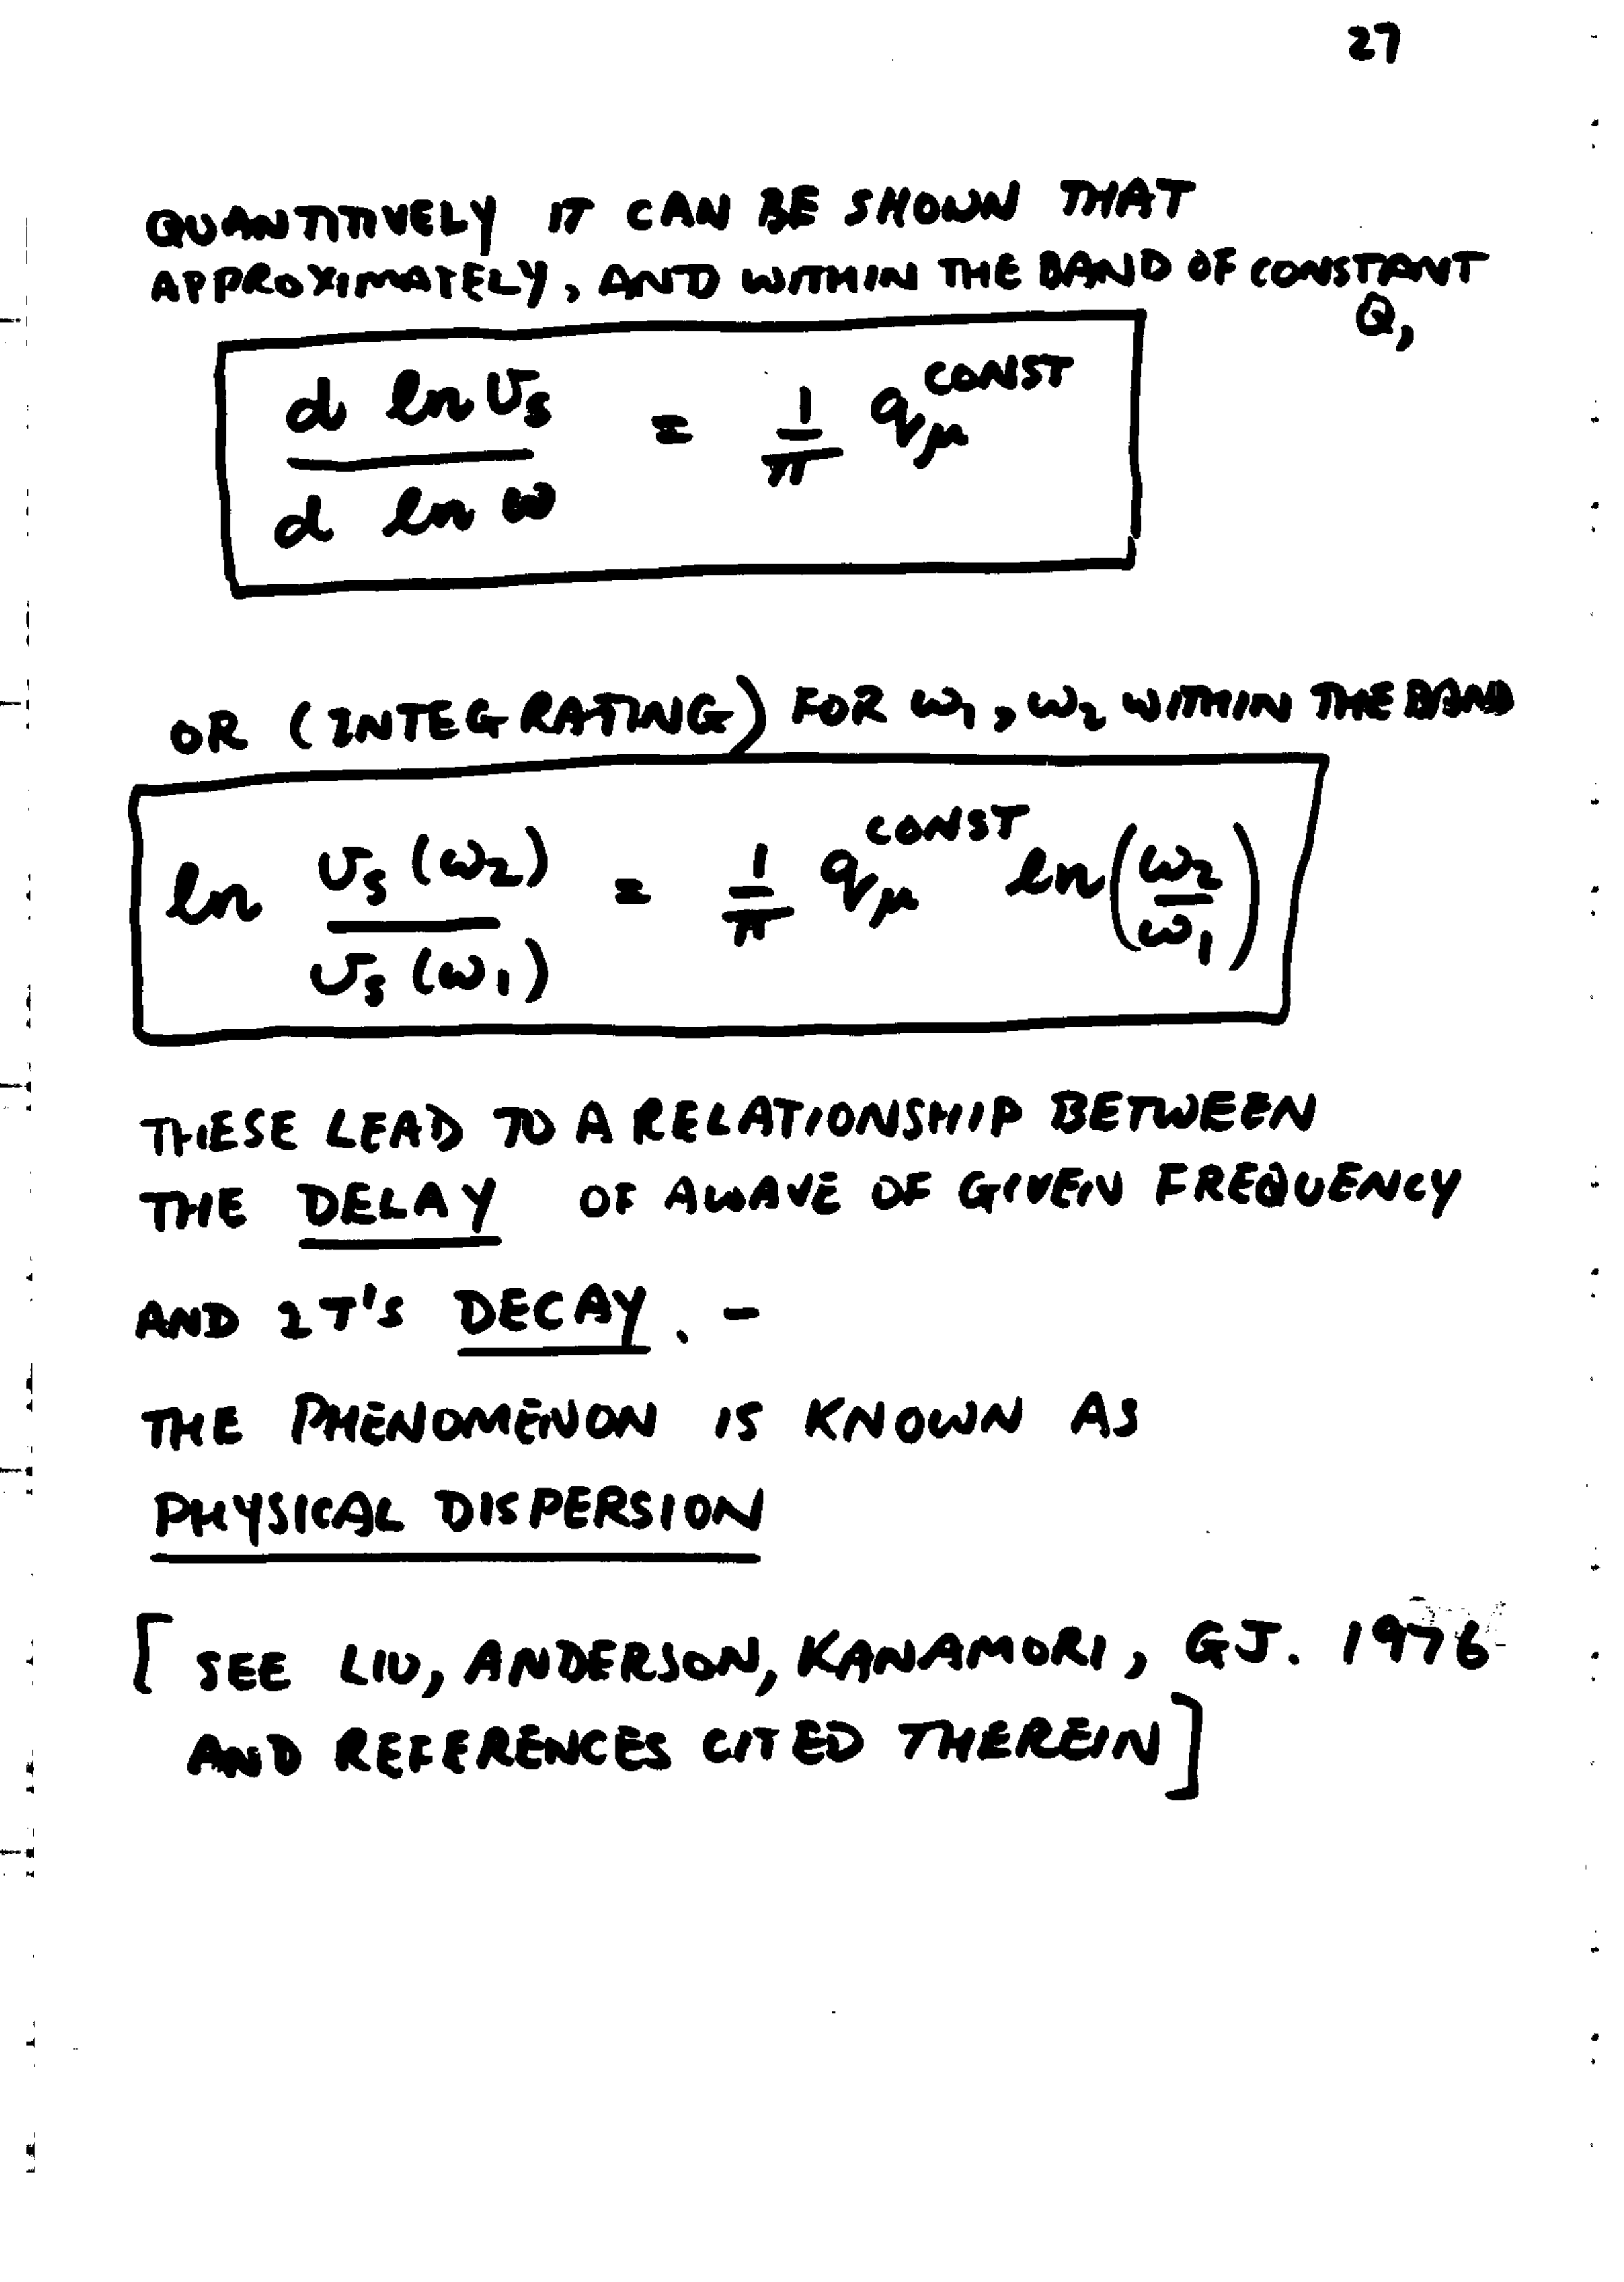 27
QUANTITIVELY IT CAN BE SHOWN THAT
APPROXIMATELY, AND WITHIN THE BAND OF CONSTANT
Q,
d ln υs / d ln ω = 1/π qμ^CONST
OR (INTEGRATING) FOR ω1, ω2 WITHIN THE BAND
ln υs(ω2) / υs(ω1) = 1/π qμ^CONST ln(ω2/ω1)
THESE LEAD TO A RELATIONSHIP BETWEEN
THE DELAY OF A WAVE OF GIVEN FREQUENCY
AND IT'S DECAY. –
THE PHENOMENON IS KNOWN AS
PHYSICAL DISPERSION
[SEE LIU, ANDERSON, KANAMORI, GJ. 1976
AND REFERENCES CITED THEREIN]